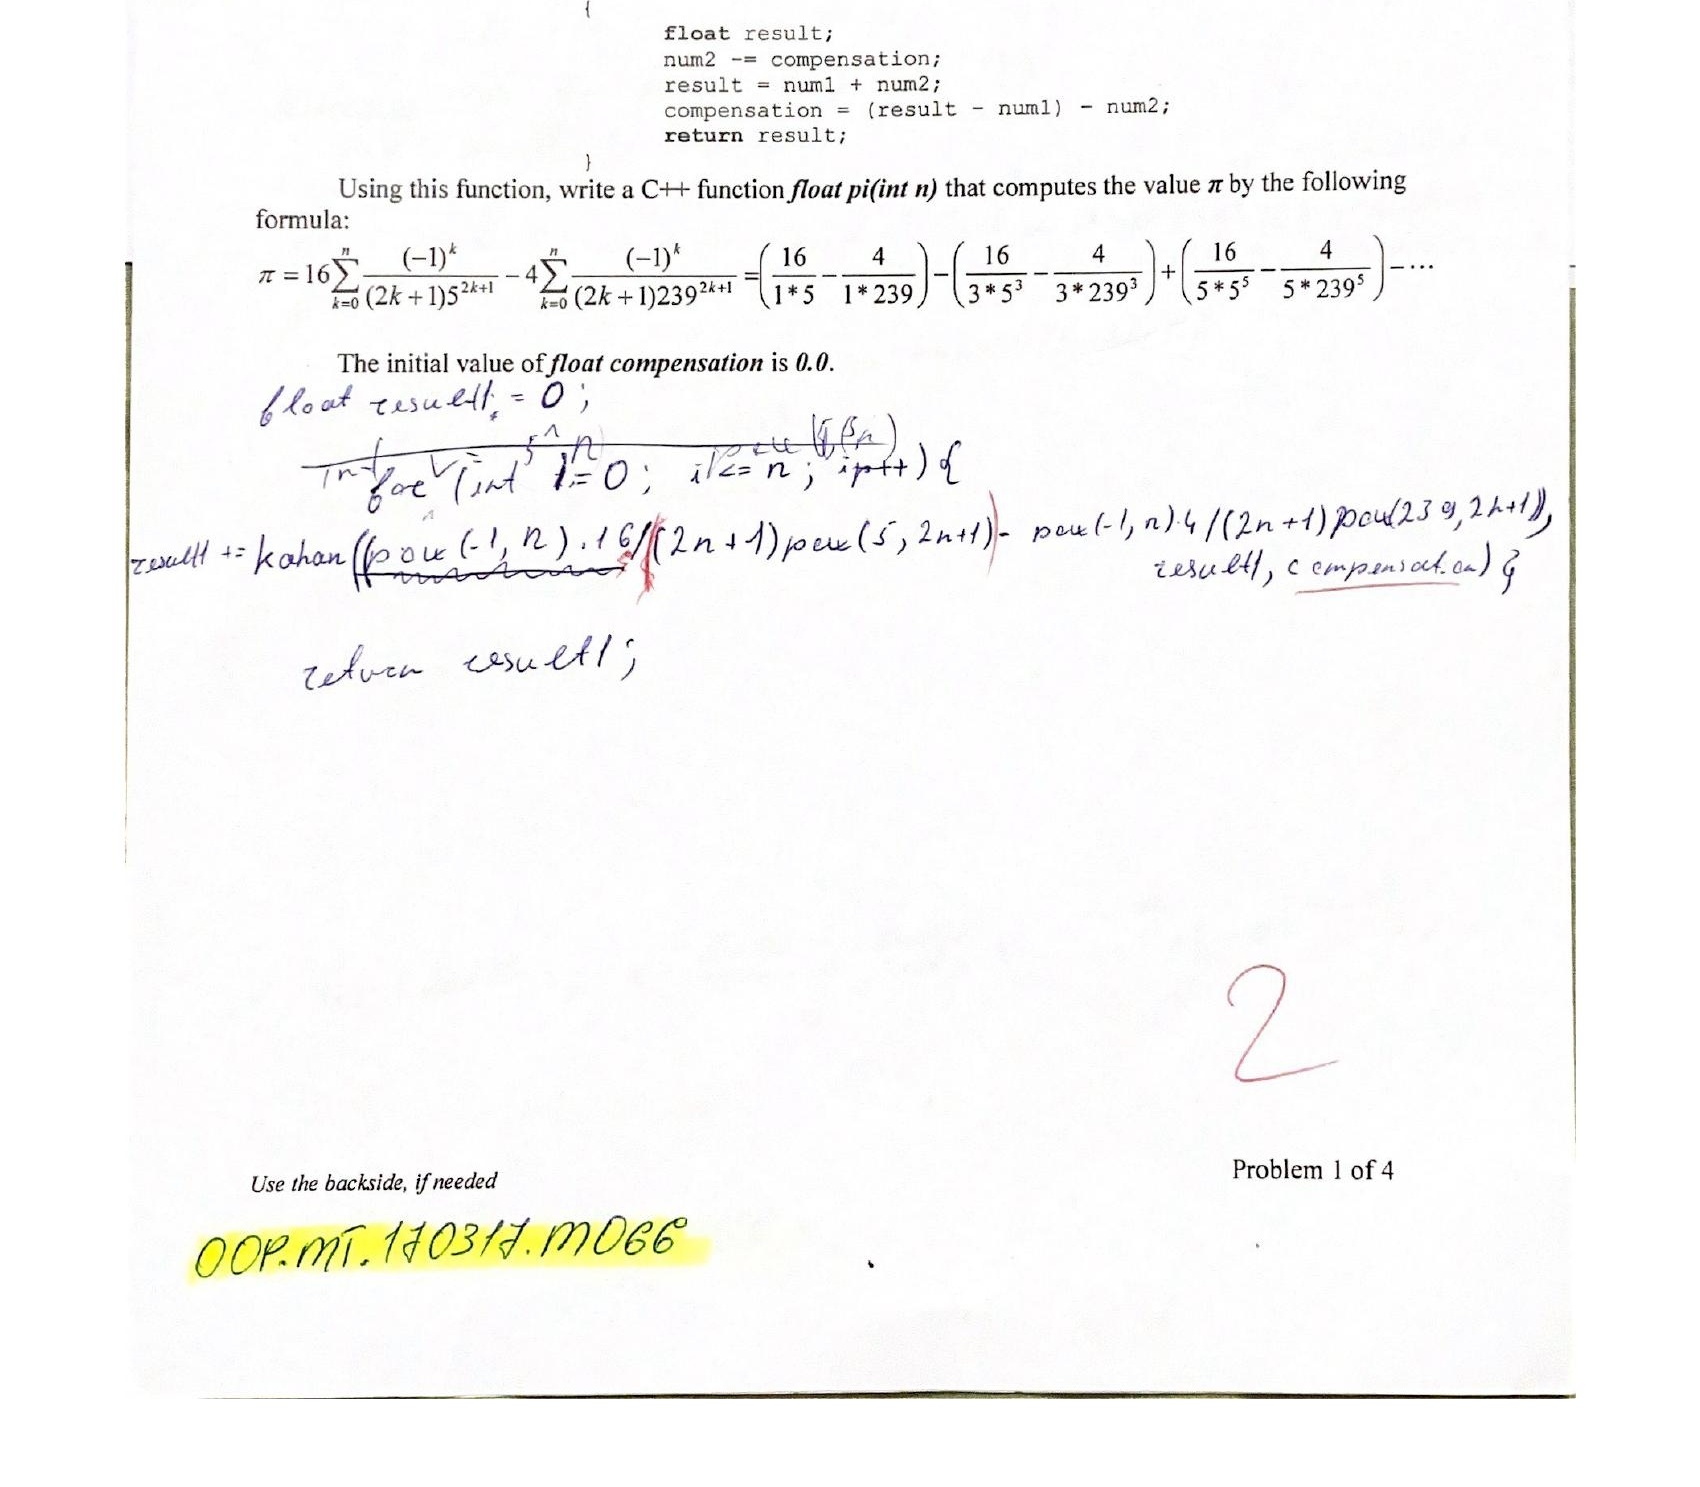 {
float result;
num2 -= compensation;
result = num1 + num2;
compensation = (result - num1) - num2;
return result;
}
Using this function, write a C++ function float pi(int n) that computes the value π by the following
formula:
π = 16 Σ_{k=0}^{n} (-1)^k / ((2k+1)5^{2k+1}) - 4 Σ_{k=0}^{n} (-1)^k / ((2k+1)239^{2k+1}) = (16/(1*5) - 4/(1*239)) - (16/(3*5^3) - 4/(3*239^3)) + (16/(5*5^5) - 4/(5*239^5)) - ...
The initial value of float compensation is 0.0.
float result1 = 0;
for (int i=0; i<= n; i++) {
result1 += kahan((pow(-1, n).16/(2n+1)pow(5, 2n+1) - pow(-1, n).4/(2n+1)pow(239, 2n+1)),
result1, compensation) }
return result1;
2
Use the backside, if needed
Problem 1 of 4
OOP.MT.170317.M066